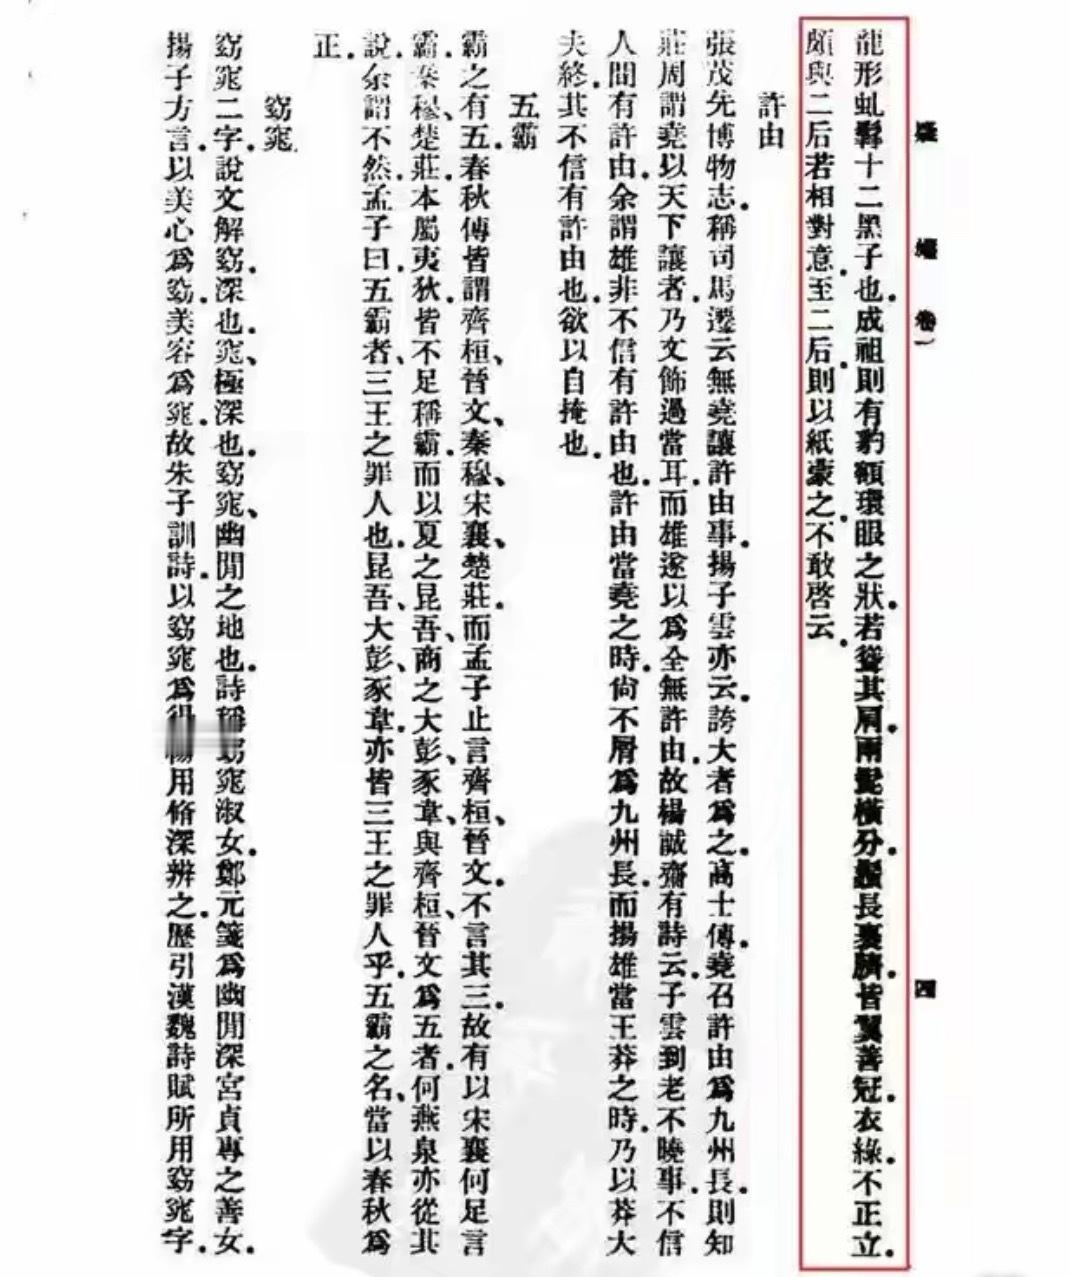 疑 耀 卷一 四
龍形虬髯十二黑子也.成祖則有豹額環眼之狀.若聳其肩.兩鬓橫分.鬚長裹臍.皆翼善冠.衣綠.不正立.
頗與二后若相對意.至二后.則以紙蒙之.不敢啓云.
許由
張茂先博物志.稱司馬遷云無堯讓許由事.揚子雲亦云.誇大者爲之.高士傳.堯召許由爲九州長.則知
莊周謂堯以天下讓者.乃文飾過當耳.而雄遂以爲全無許由.故楊誠齋有詩云.子雲到老不曉事.不信
人間有許由.余謂雄非不信有許由也.許由當堯之時.尙不屑爲九州長.而揚雄當王莽之時.乃以莽大
夫終.其不信有許由也.欲以自掩也.
五霸
霸之有五.春秋傳皆謂齊桓、晉文、秦穆、宋襄、楚莊.而孟子止言齊桓、晉文.不言其三.故有以宋襄何足言
霸.秦穆、楚莊.本屬夷狄.皆不足稱霸.而以夏之昆吾、商之大彭、豕韋、與齊桓、晉文爲五者.何燕泉亦從其
說.余謂不然.孟子曰.五霸者、三王之罪人也.昆吾、大彭、豕韋.亦皆三王之罪人乎.五霸之名、當以春秋爲
正.
窈窕.
窈窕二字.說文解窈.深也.窕、極深也.窈窕、幽閒之地也.詩稱窈窕淑女.鄭元箋爲幽閒深宮貞專之善女.
揚子方言.以美心爲窈.美容爲窕.故朱子訓詩.以窈窕爲得.楊用脩深辨之.歷引漢魏詩賦所用窈窕字.